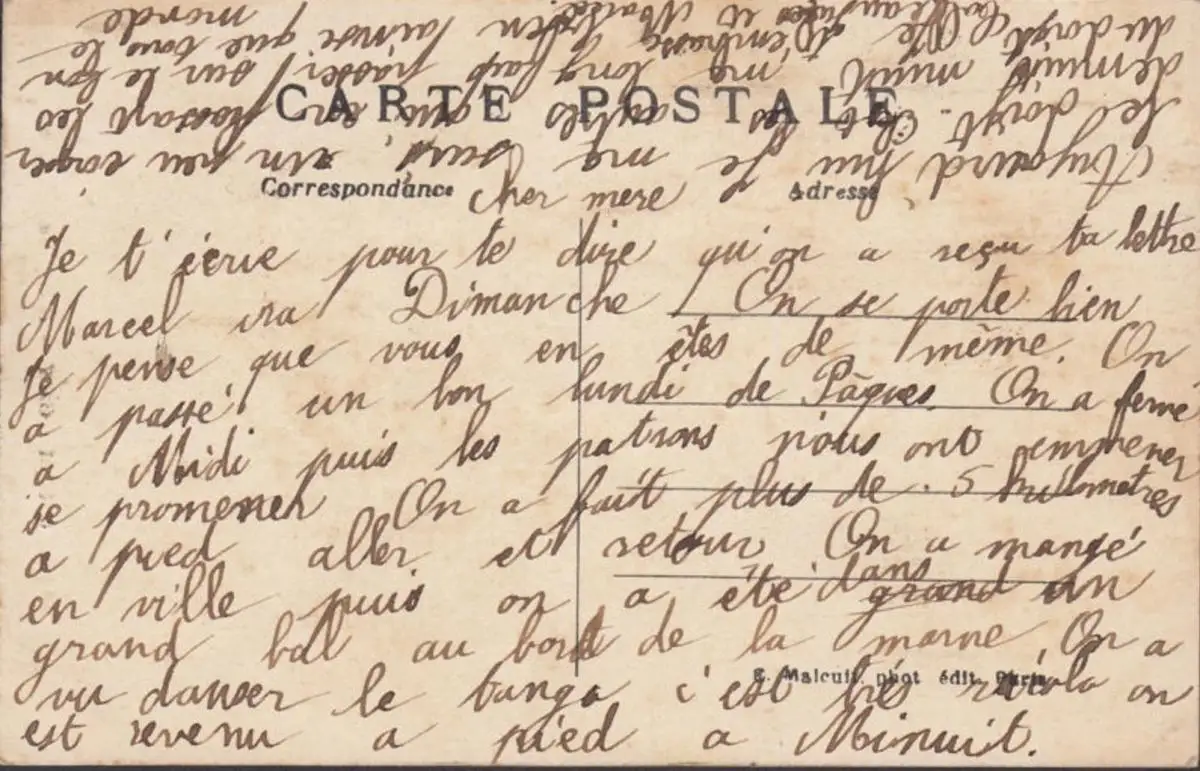 CARTE POSTALE
Correspondance
Adresse
Cher mere
Je t'écrie pour te dire qu'on a reçu ta lettre
Marcel ira Dimanche On se porte bien
Je pense que vous en êtes de même. On
a passé un bon lundi de Pâques. On a fermé
a Midi puis les patrons nous ont emmener
se promener On a fait plus de 5 kilomètres
a pied aller et retour On a mangé
en ville puis on a été dans grand un
grand bal au bord de la marne, On a
vu danser le tango c'est très on
est revenu a pied a Minuit.
E. Malcuit, phot édit. Paris
Aujourd hui Je me suis un peu couper
les doigt. Et les en les
demuit minuit me long fait passer sur le bon
du doigt Je t'embrasse bien ainsi que tous le
monde